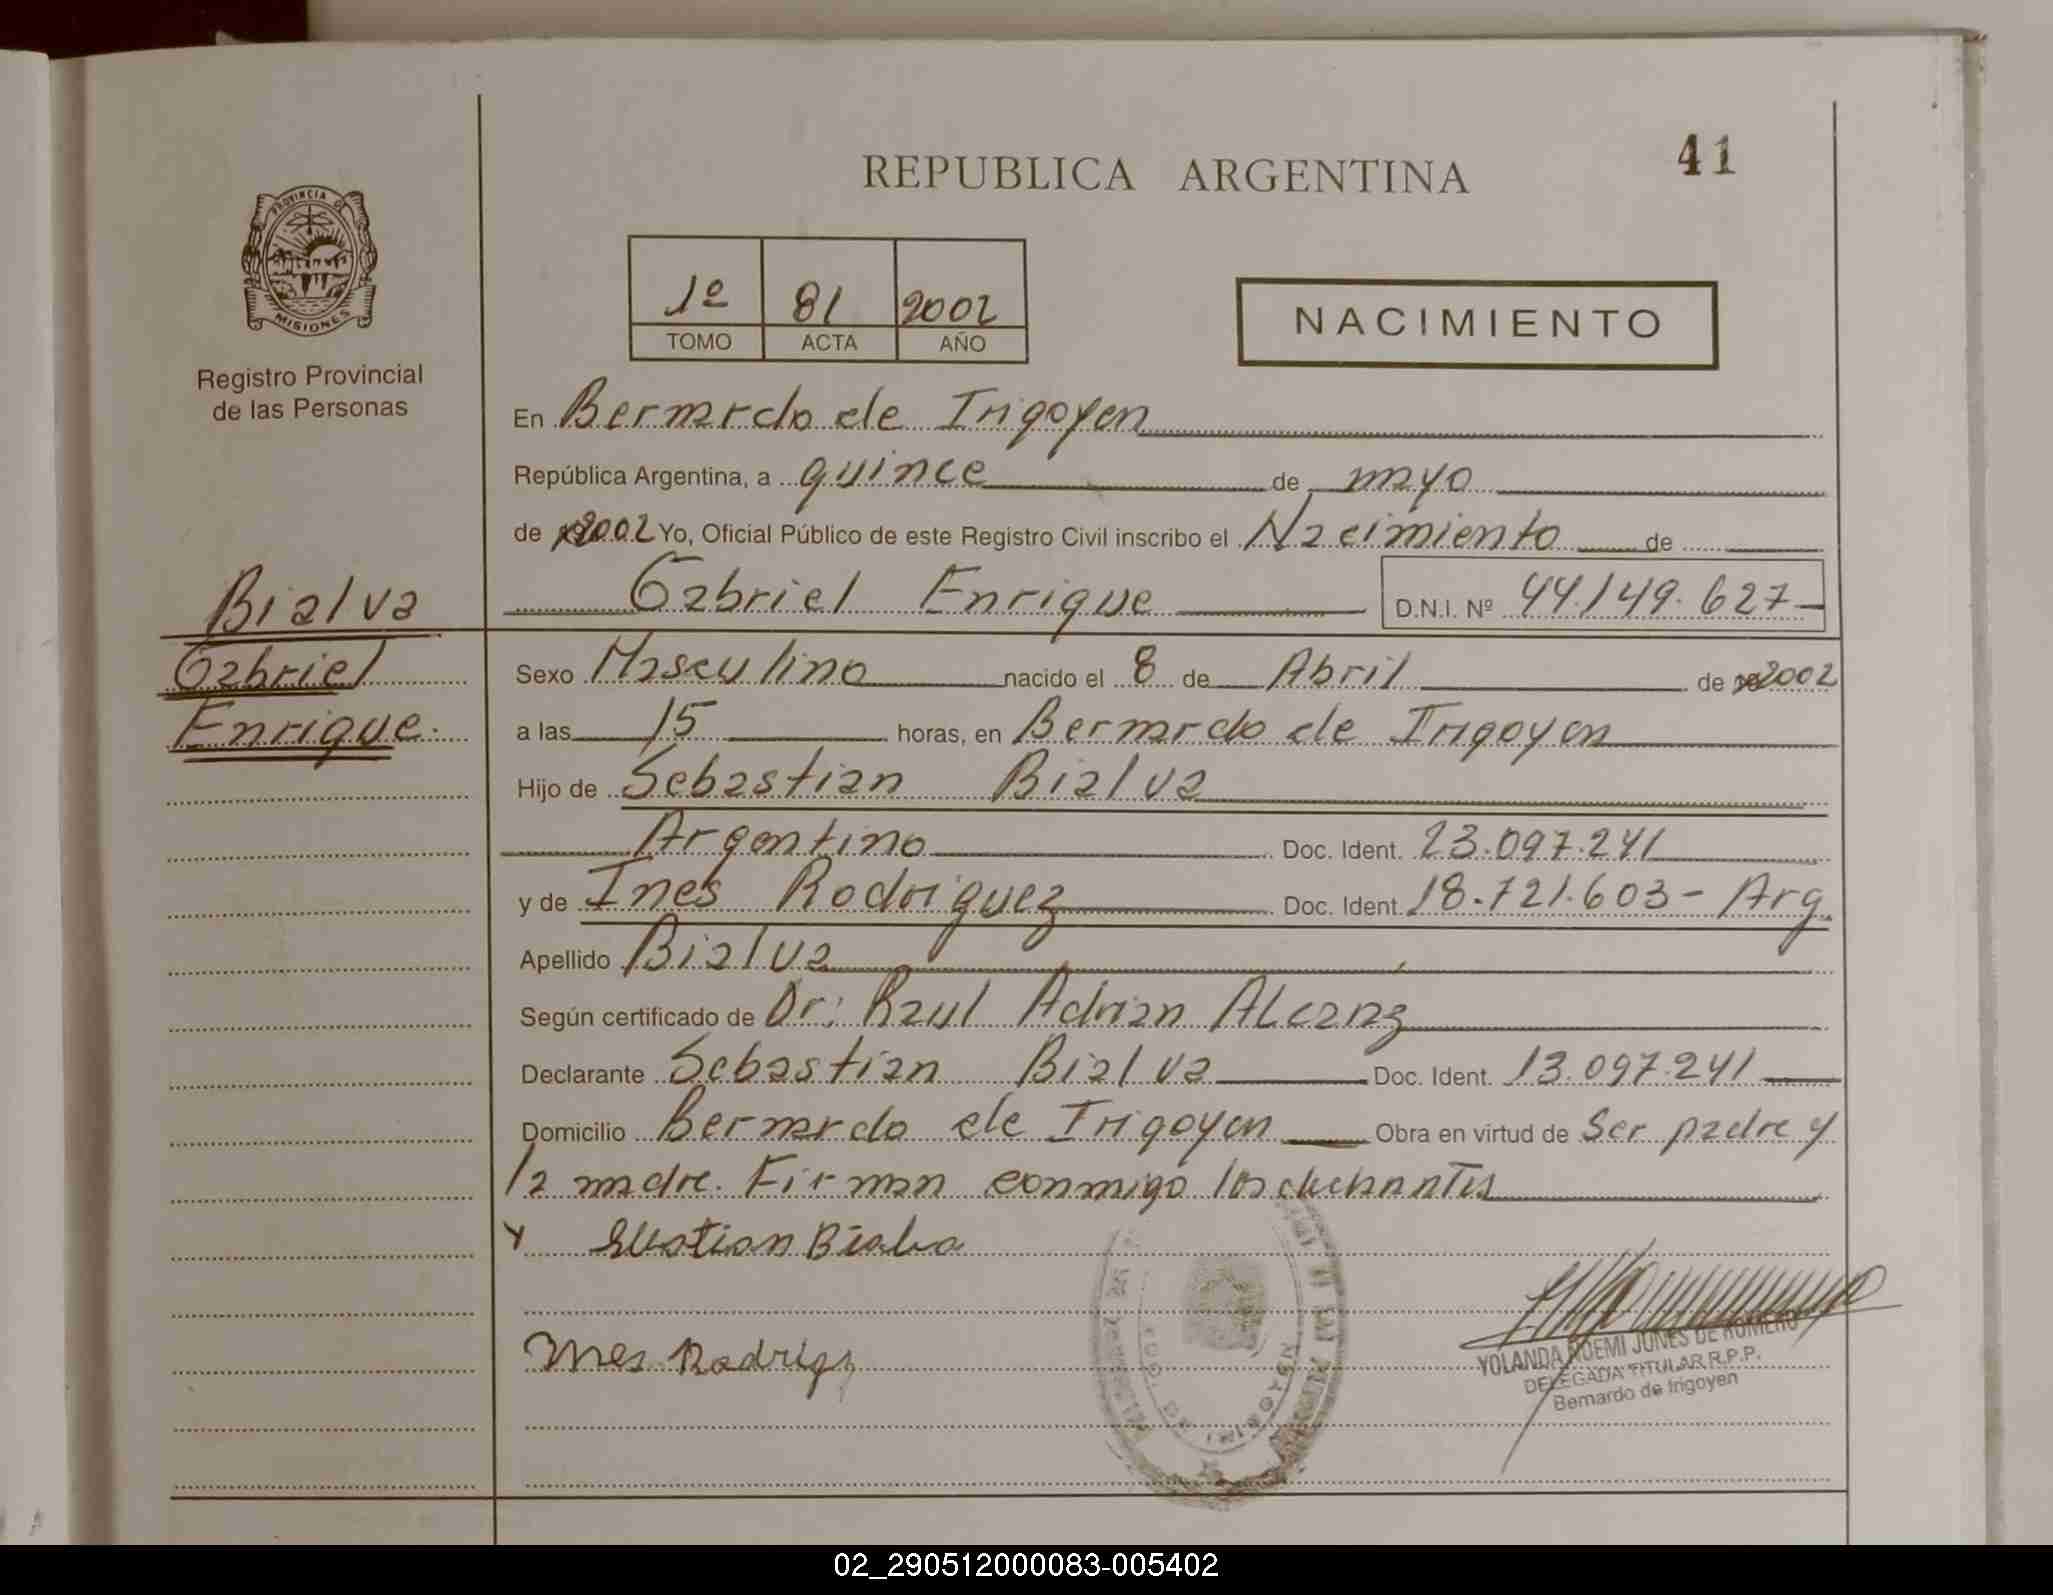 41
REPUBLICA ARGENTINA
PROVINCIA DE
MISIONES
Registro Provincial
de las Personas
1º 81 2002
TOMO ACTA AÑO
NACIMIENTO
En Bernardo de Irigoyen
República Argentina, a quince de mayo
de 2002 Yo, Oficial Público de este Registro Civil inscribo el Nacimiento de
Gabriel Enrique D.N.I. Nº 44.149.627
Bialva
Gabriel
Enrique.
Sexo Masculino nacido el 8 de Abril de 2002
a las 15 horas, en Bernardo de Irigoyen
Hijo de Sebastian Bialva
Argentino Doc. Ident. 23.097.241
y de Ines Rodriguez Doc. Ident. 18.721.603 - Arg.
Apellido Bialva
Según certificado de Dr: Raul Adrian ALcaraz
Declarante Sebastian Bialva Doc. Ident. 13.097.241
Domicilio Bernardo de Irigoyen Obra en virtud de Ser padre y
la madre. Firman conmigo los
Bialva
Ines Rodrigz
YOLANDA NOEMI JONES DE ROMERO
DELEGADA TITULAR R.P.P.
Bernardo de Irigoyen
02_290512000083-005402